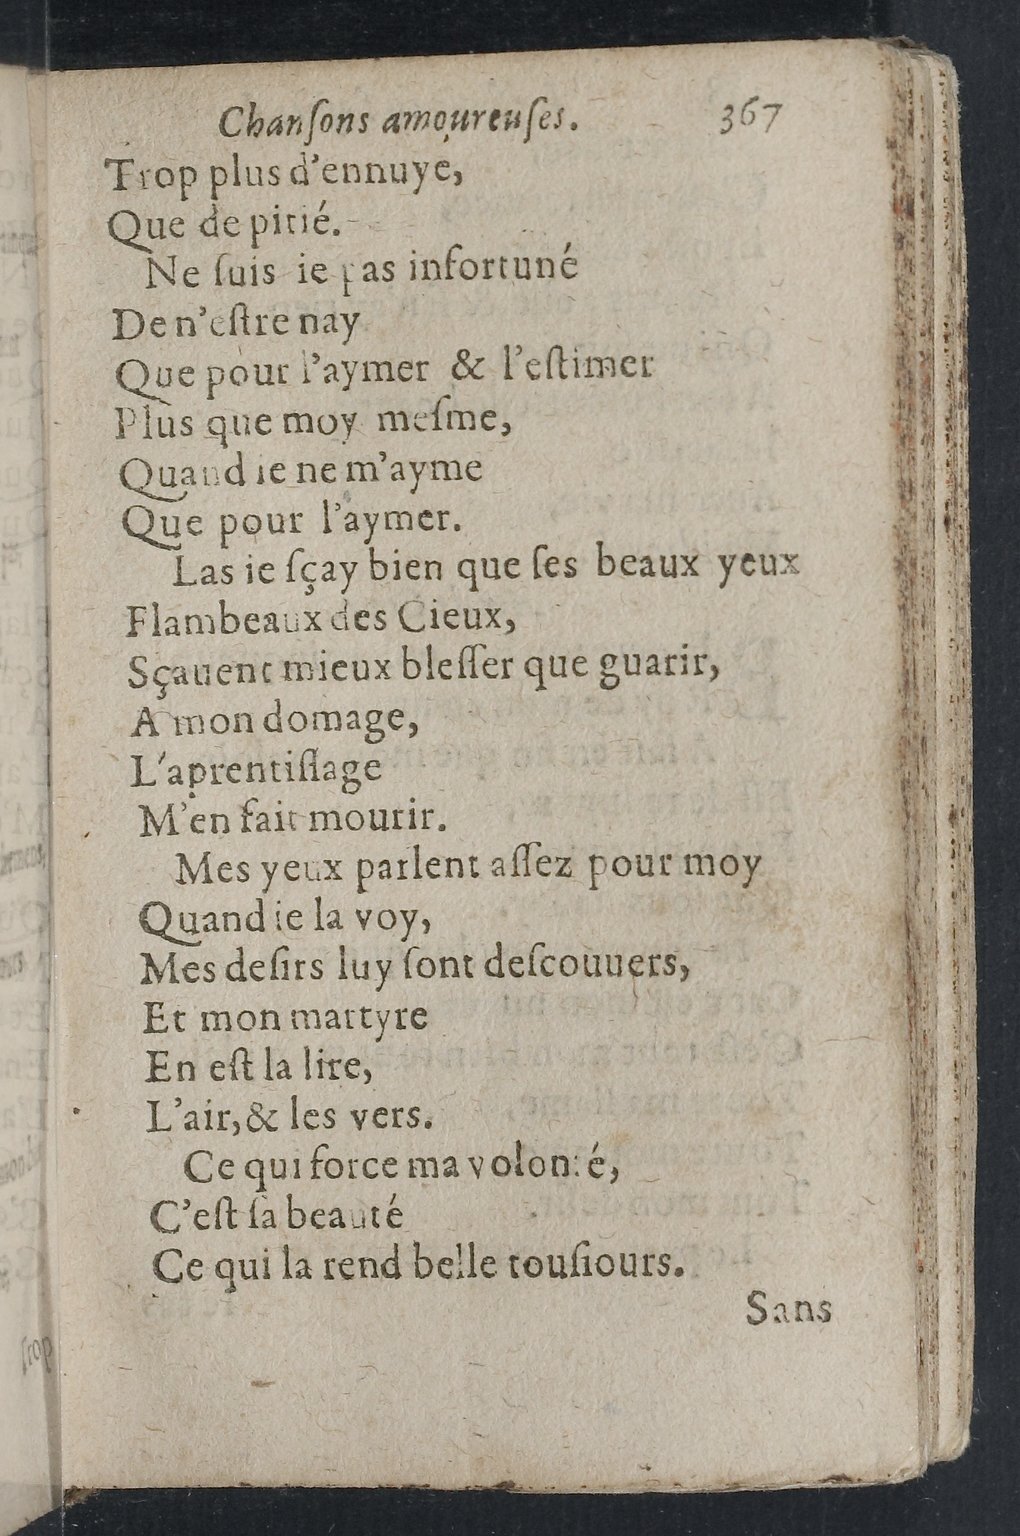 Chanſons amoureuſes. 367
Trop plus d'ennuye,
Que de pitié.
Ne ſuis ie pas infortuné
De n'eſtre nay
Que pour l'aymer & l'eſtimer
Plus que moy meſme,
Quand ie ne m'ayme
Que pour l'aymer.
Las ie ſçay bien que ſes beaux yeux
Flambeaux des Cieux,
Sçauent mieux bleſſer que guarir,
A mon domage,
L'aprentiſſage
M'en fait mourir.
Mes yeux parlent aſſez pour moy
Quand ie la voy,
Mes deſirs luy ſont deſcouuers,
Et mon martyre
En eſt la lire,
L'air, & les vers.
Ce qui force ma volonté,
C'eſt ſa beauté
Ce qui la rend belle touſiours.
Sans